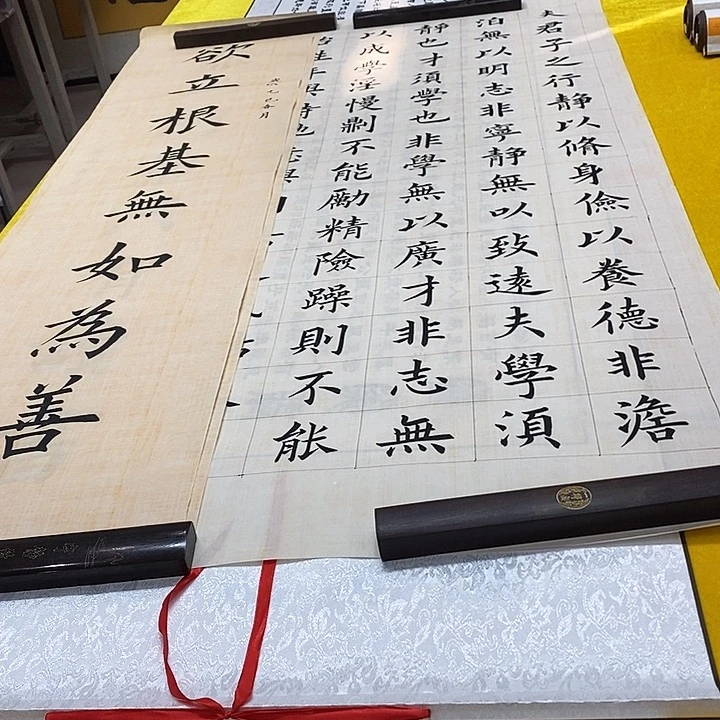 夫君子之行靜以脩身儉以養德非澹
泊無以明志非寧靜無以致遠夫學須
靜也才須學也非學無以廣才非志無
以成學淫慢不能勵精險躁則不能
年與時
欲立根基無如為善